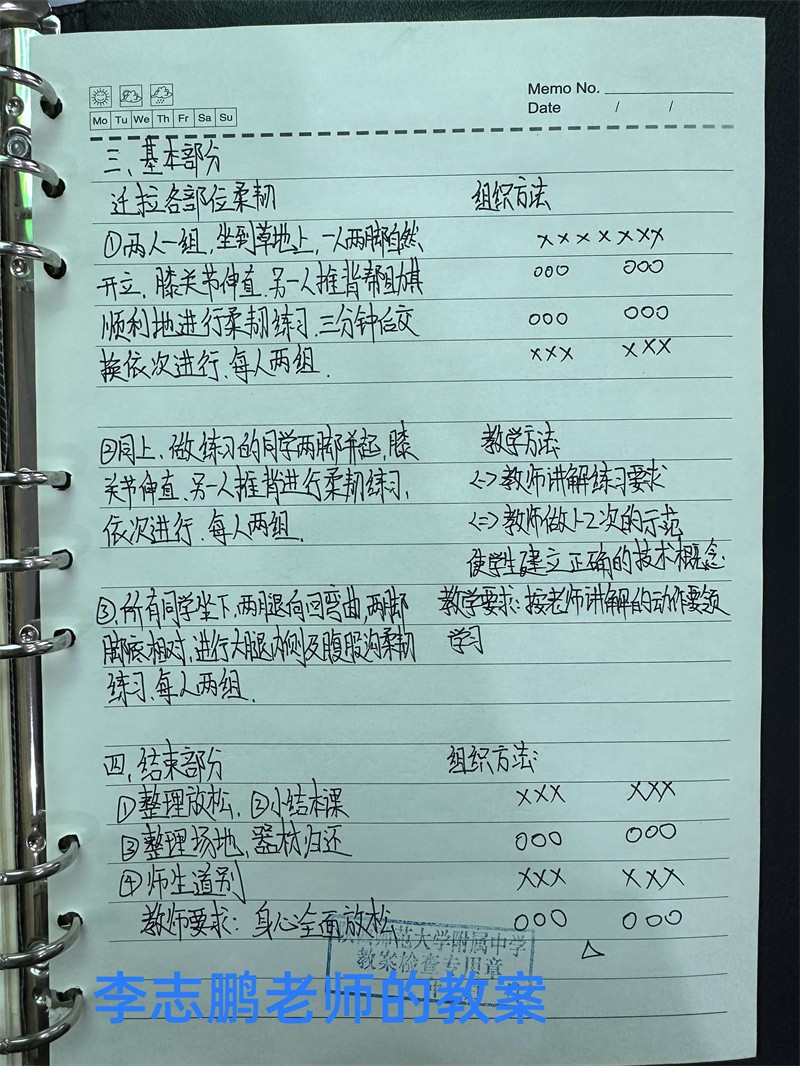 Memo No.
Mo Tu We Th Fr Sa Su
Date / /
三、基本部分
迁拉各部位柔韧
组织方法
①两人一组,坐到草地上,一人两脚自然
×××××××
开立,膝关节伸直.另一人推背帮助其
○○○ ○○○
顺利地进行柔韧练习.三分钟后交
○○○ ○○○
换依次进行、每人两组.
××× ×××
②同上,做练习的同学两脚并起,膝
教学方法
关节伸直.另一人推背进行柔韧练习.
<一>教师讲解练习要求
依次进行.每人两组.
<二>教师做1-2次的示范
使学生建立正确的技术概念
③,所有同学坐下,两腿向回弯曲,两脚
教学要求:按老师讲解的动作要领
脚底相对,进行大腿内侧及腹股沟柔韧
学习
练习.每人两组.
四,结束部分
组织方法:
①整理放松,②小结本课
××× ×××
③整理场地,器材归还
○○○ ○○○
④师生道别
××× ×××
教师要求:身心全面放松
○○○ ○○○
△
师范大学附属中学
教案检查专用章
李志鹏老师的教案